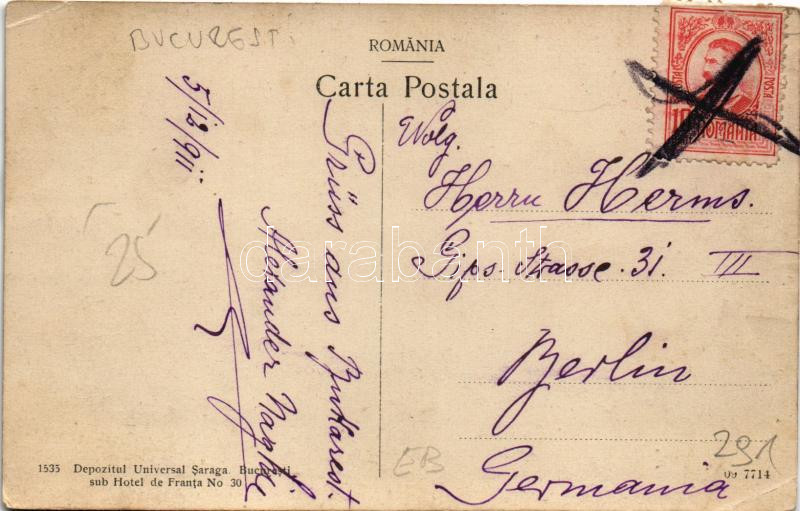 BUCUREȘTI
ROMÂNIA
Carta Postala
5/12/911.
Grüss aus Bukarest.
Alexander
25
Wolg.
Herrn Herms.
Gips-Strasse. 31. III
Berlin
Germania
POSTA
POSTA
ROMANIA
darabanth.com
1535 Depozitul Universal Şaraga. Bucureşti
sub Hotel de Franţa No 30
EB
291
09 7714